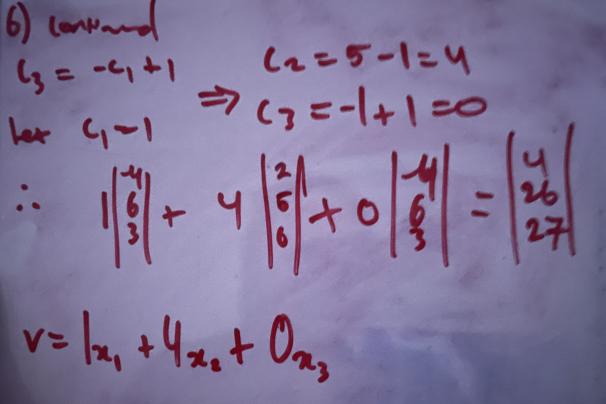 6) continued
C₃ = -C₁ + 1
Let C₁ = 1
⇒ C₂ = 5 - 1 = 4
C₃ = -1 + 1 = 0
∴ 1 |-4 6 3| + 4 |2 5 6| + 0 |-4 6 3| = |4 26 27|
v = 1x₁ + 4x₂ + 0x₃